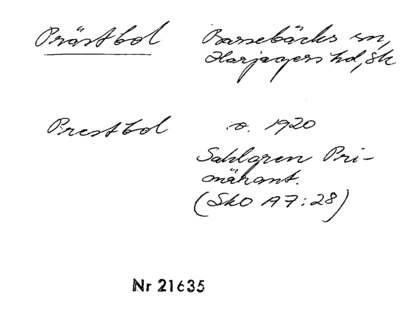 Prästbol Barsebäcks sn,
Harjagers hd, Sk
Prestbol o. 1920
Sahlgren Pri-
märant.
(Sko A7:28)
Nr 21635